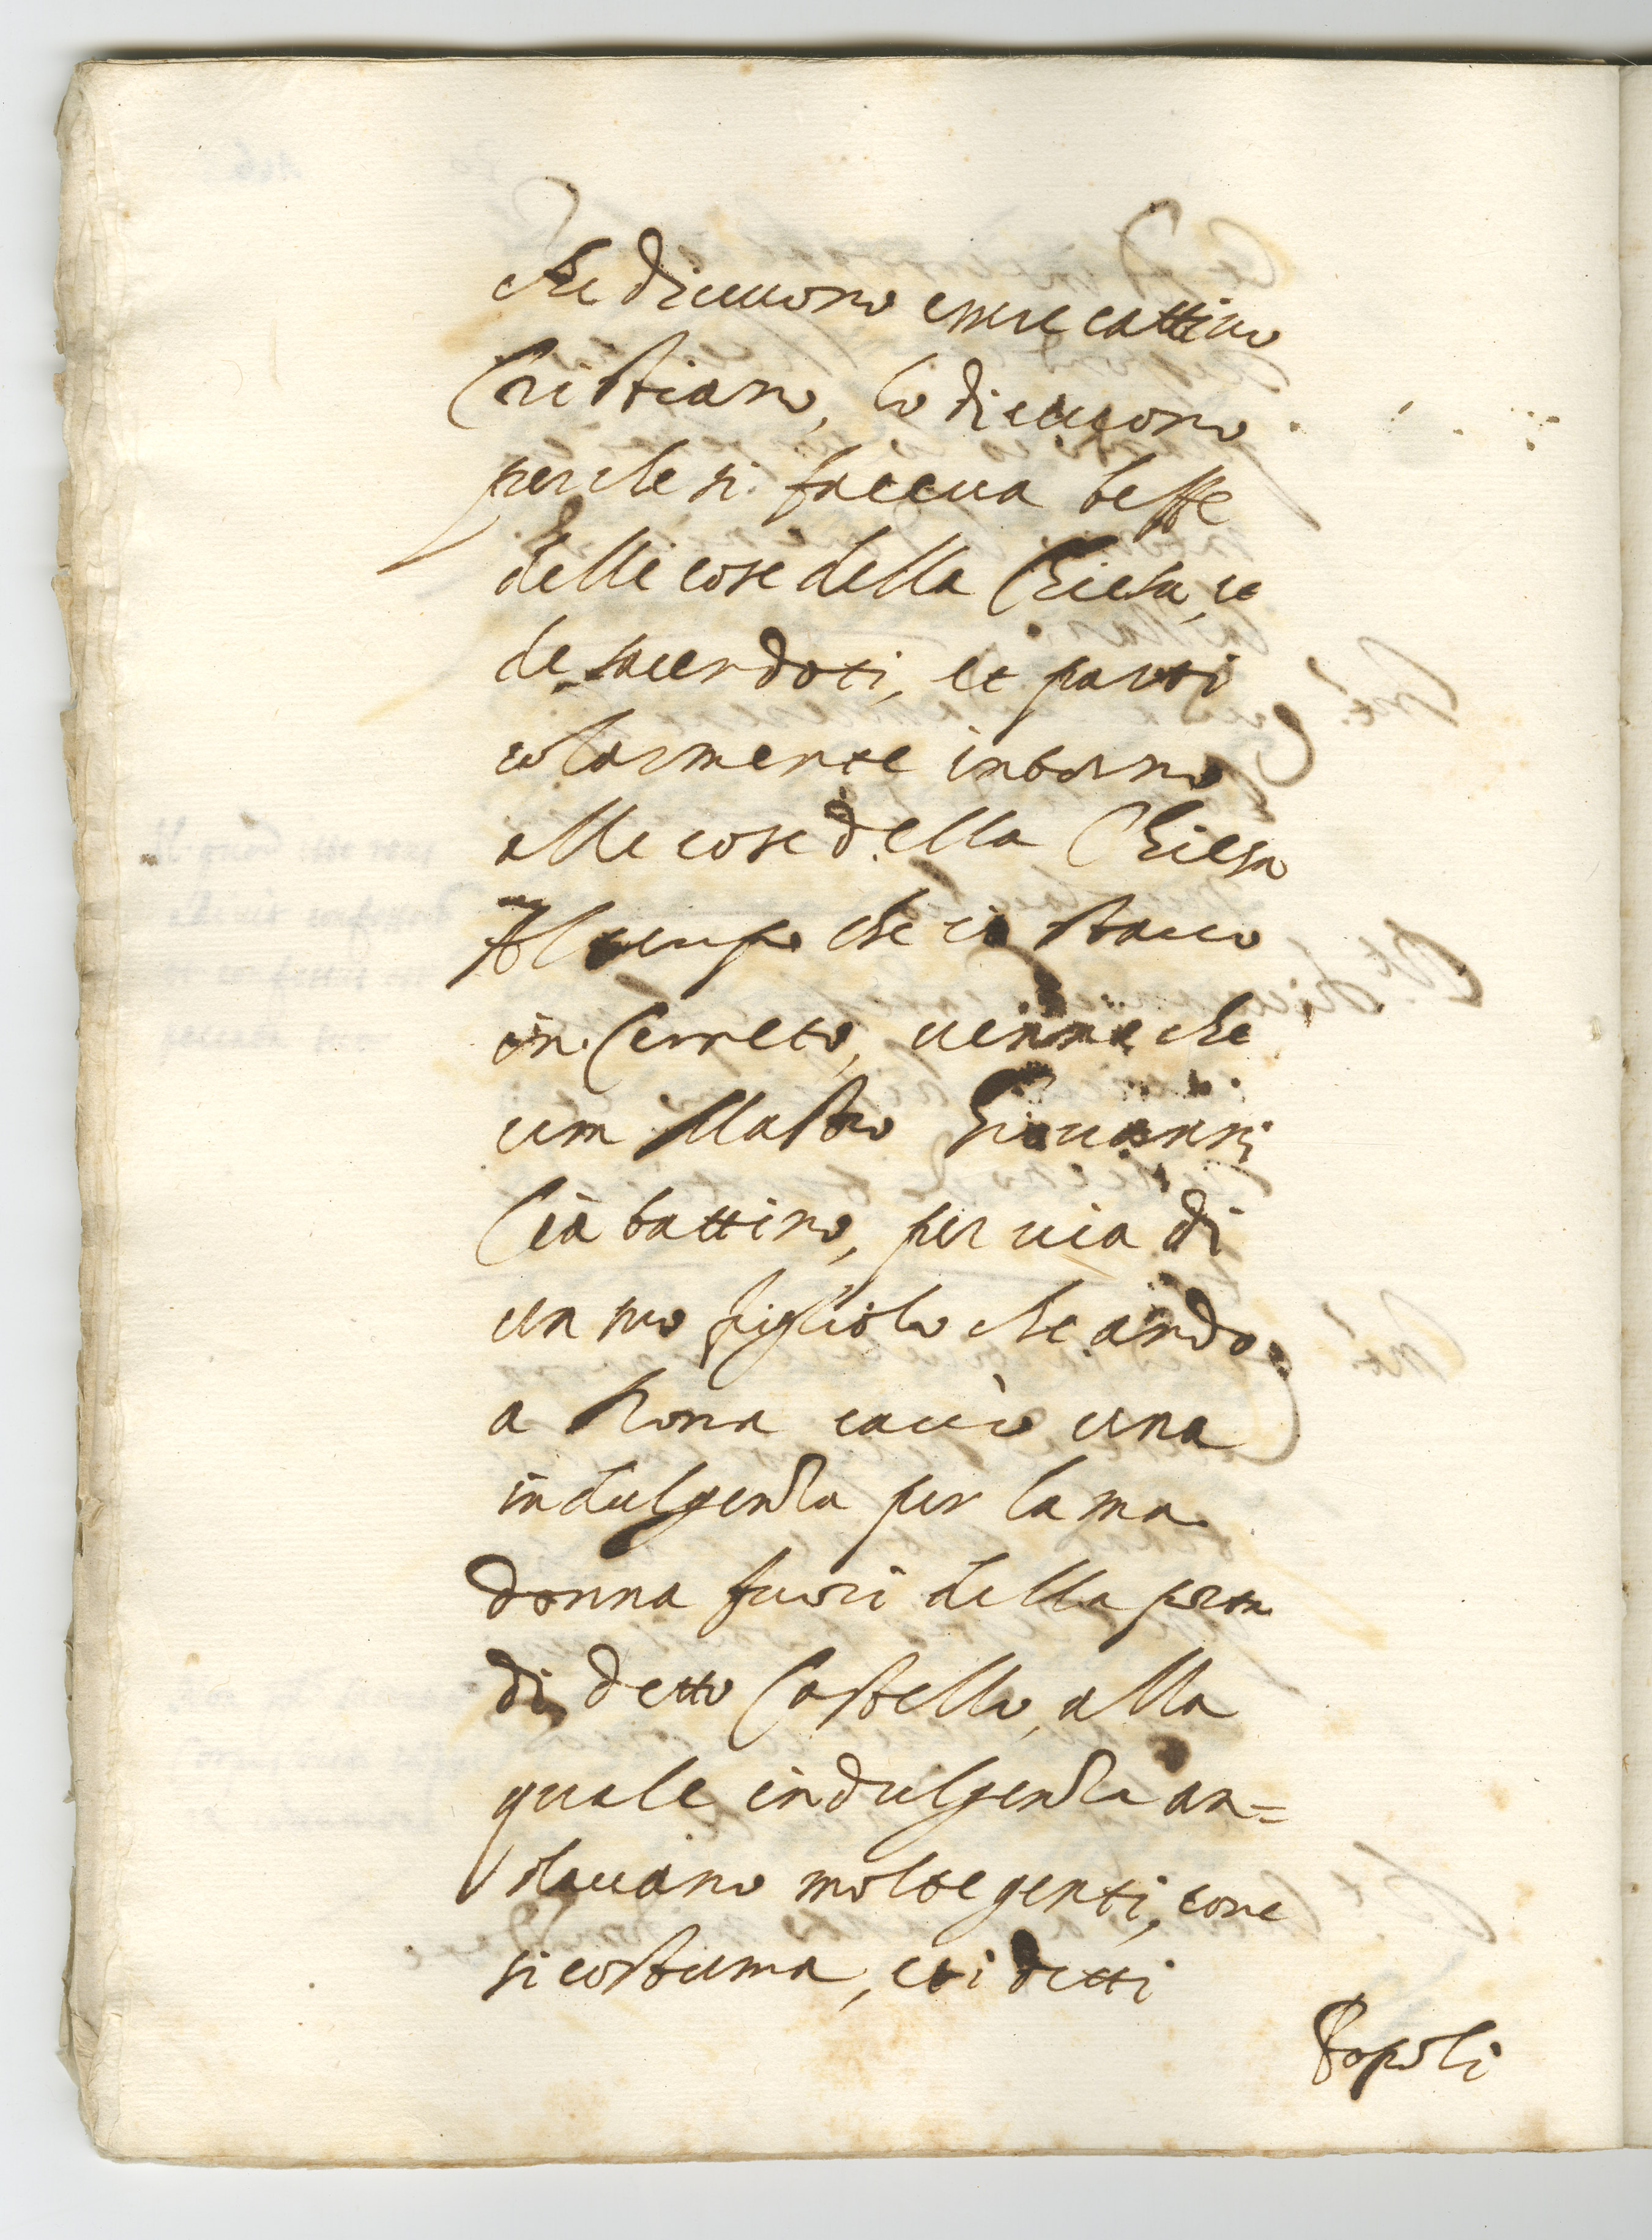 che diceuono essere cattiuo
Cristiano, lo diceuono
perche si faceua beffe
delle cose della Chiesa, et
de sacerdoti, et parti
colarmente intorno
alle cose della Chiesa
Al tempo che io stauo
in Cerreto, uenne che
um Mastro Giouanni
Ciabattino, per uia di
un suo figliolo che andò
a Roma cauò una
indulgenza per la ma
donna fuori della porta
di detto Castello, alla
quale indulgenza an=
dauano molte genti, come
si costuma, et i detti
Popoli